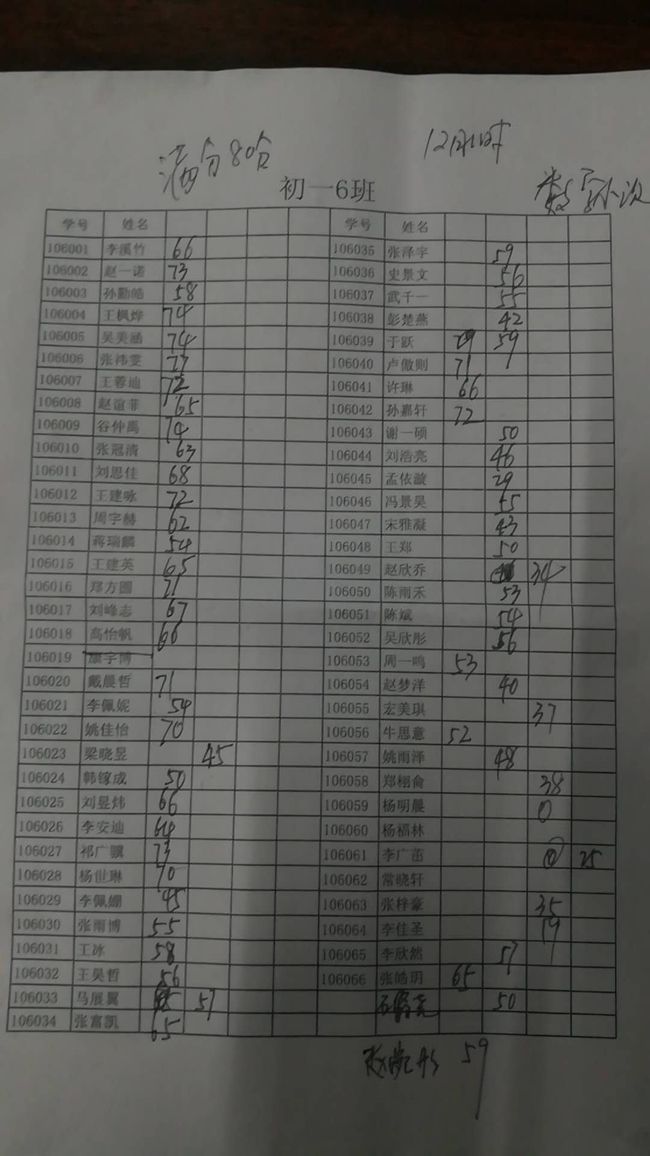 满分80分
初一6班
学号 姓名
106001 李溪竹 66
106002 赵一诺 73
106003 孙勤皓 58
106004 王枫烨 74
106005 吴美涵 74
106006 张祎雯
106007 王蓉迪 72
106008 赵谊菲 65
106009 谷仲禹 74
106010 张冠清 63
106011 刘思佳 68
106012 王建咏 72
106013 周宇赫 62
106014 蒋瑞麟 54
106015 王建英 65
106016 郑方圆 71
106017 刘峰志 67
106018 高怡帆 66
106019 宇博
106020 戴晨哲 71
106021 李佩妮 54
106022 姚佳怡 70
106023 梁晓昱 45
106024 韩镓成 50
106025 刘昱炜 66
106026 李安迪 64
106027 祁广骥 73
106028 杨世琳 70
106029 李佩姗 45
106030 张雨博 55
106031 王冰 58
106032 王昊哲 56
106033 马展翼 57
106034 张富凯 65
学号 姓名
106035 张泽宇 59
106036 史景文 56
106037 武千一 55
106038 彭楚燕 42
106039 于跃 59
106040 卢傲则 71
106041 许琳 66
106042 孙嘉轩 72
106043 谢一硕 50
106044 刘浩亮 46
106045 孟依漩 29
106046 冯景昊 55
106047 宋雅凝 43
106048 王郑 50
106049 赵欣乔 34
106050 陈雨禾 53
106051 陈斌 54
106052 吴欣彤 56
106053 周一鸣 53
106054 赵梦洋 40
106055 宏美琪 37
106056 牛思意 52
106057 姚雨泽 48
106058 郑栩俞 38
106059 杨明晨 0
106060 杨福林
106061 李广茁 0 25
106062 常晓轩
106063 张梓豪 35
106064 李佳圣 19
106065 李欣然 57
106066 张皓玥 65
50
59